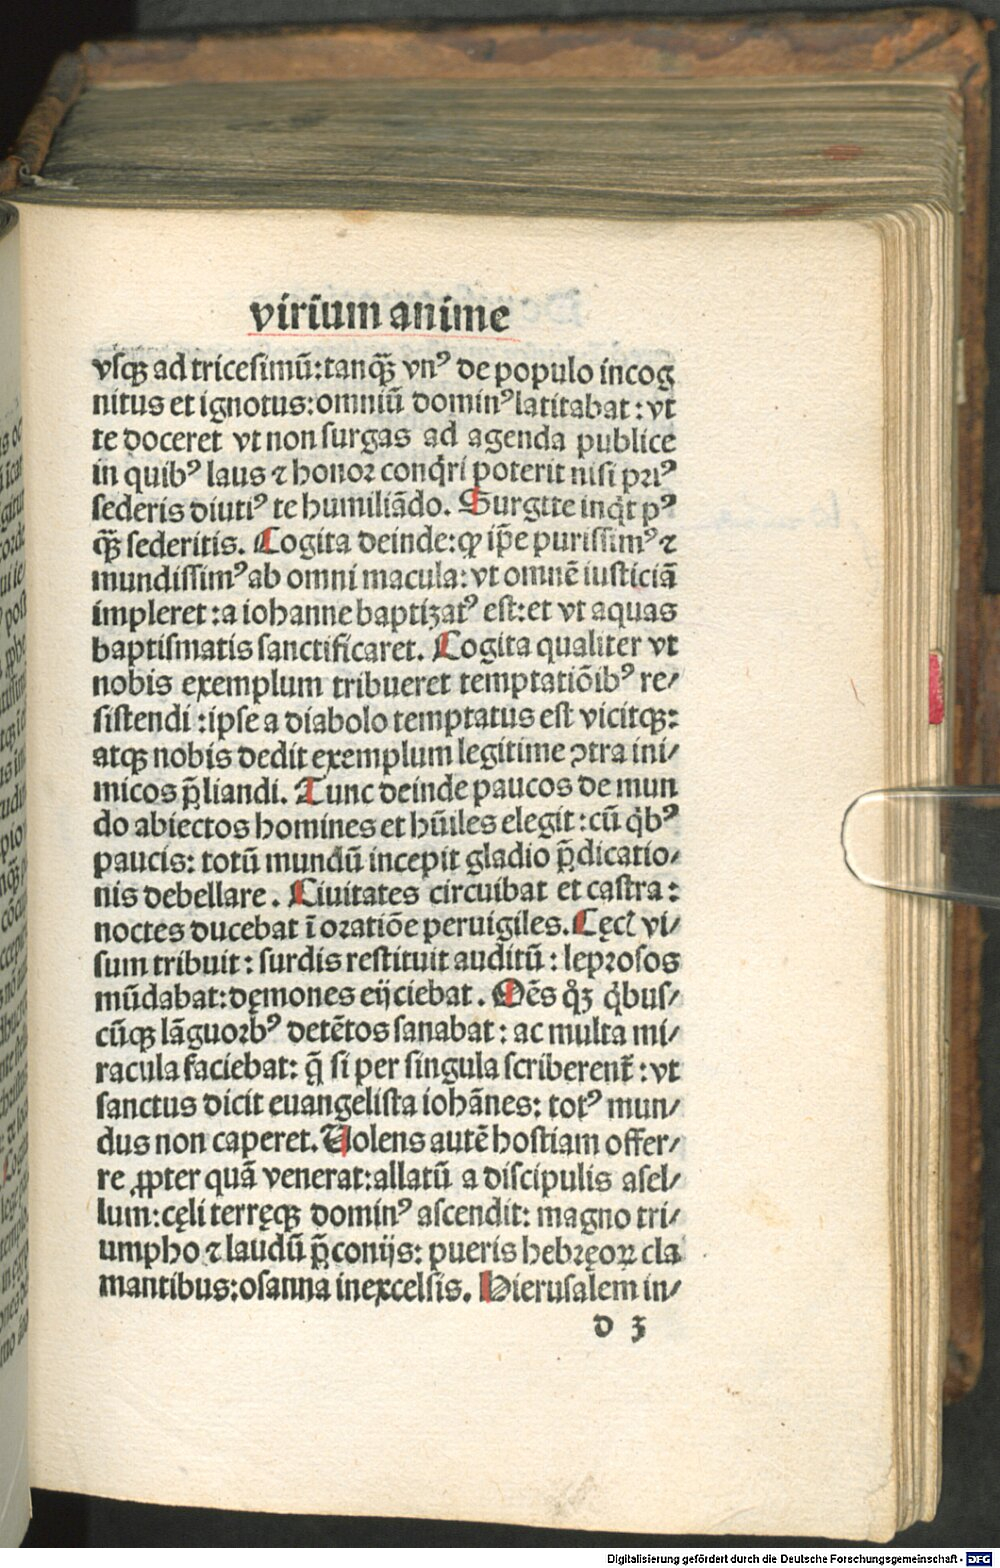 viriū­m anime
vſqꝫ ad triceſimū:tanqͣꝫ vnꝰ de populo incog
nitus et ignotus:omniū dominꝰ latitabat:vt
te doceret vt non ſurgas ad agenda publice
in quibꝰ laus ⁊ honoꝛ conq̇ri poterit niſi pꝛiꝰ
ſederis diutiꝰ te humiliādo. Surgite inq̇t pꝰ
qͣꝫ ſederitis. Cogita deinde:ꝙ ip̄e puriſſimꝰ ⁊
mundiſſimꝰ ab omni macula:vt omnē iuſticiā
impleret:a iohanne baptiʒatꝰ eſt:et vt aquas
baptiſmatis ſanctificaret. Cogita qualiter vt
nobis exemplum tribueret temptatiōibꝰ re/
ſiſtendi:ipſe a diabolo temptatus eſt vicitqꝫ:
atqꝫ nobis dedit exemplum legitime ꝯtra ini/
micos p̄liandi. Tunc deinde paucos de mun
do abiectos homines et hūiles elegit:cū q̇bꝰ
paucis: totū mundū incepit gladio p̄dicatio/
nis debellare. Ciuitates circuibat et caſtra:
noctes ducebat ī oꝛatiōe peruigiles. Cęcꝭ vi/
ſum tribuit: ſurdis reſtituit auditū: lepꝛoſos
mūdabat:dęmones eijciebat. Oēs qͦꝫ q̇buſ/
cūqꝫ lāguoꝛbꝰ detētos ſanabat: ac multa mi/
racula faciebat: q̄ ſi per ſingula ſcriberent᷑:vt
ſanctus dicit euangeliſta iohānes: totꝰ mun/
dus non caperet. Uolens autē hoſtiam offer/
re ꝓpter quā venerat:allatū a diſcipulis aſel/
lum:cęli terręqꝫ dominꝰ aſcendit: magno tri/
umpho ⁊ laudū p̄conijs: pueris hebręoꝝ cla
mantibus:oſanna inexcelſis. Hieruſalem in/
d 3
Digitalisierung gefördert durch die Deutsche Forschungsgemeinschaft - DFG